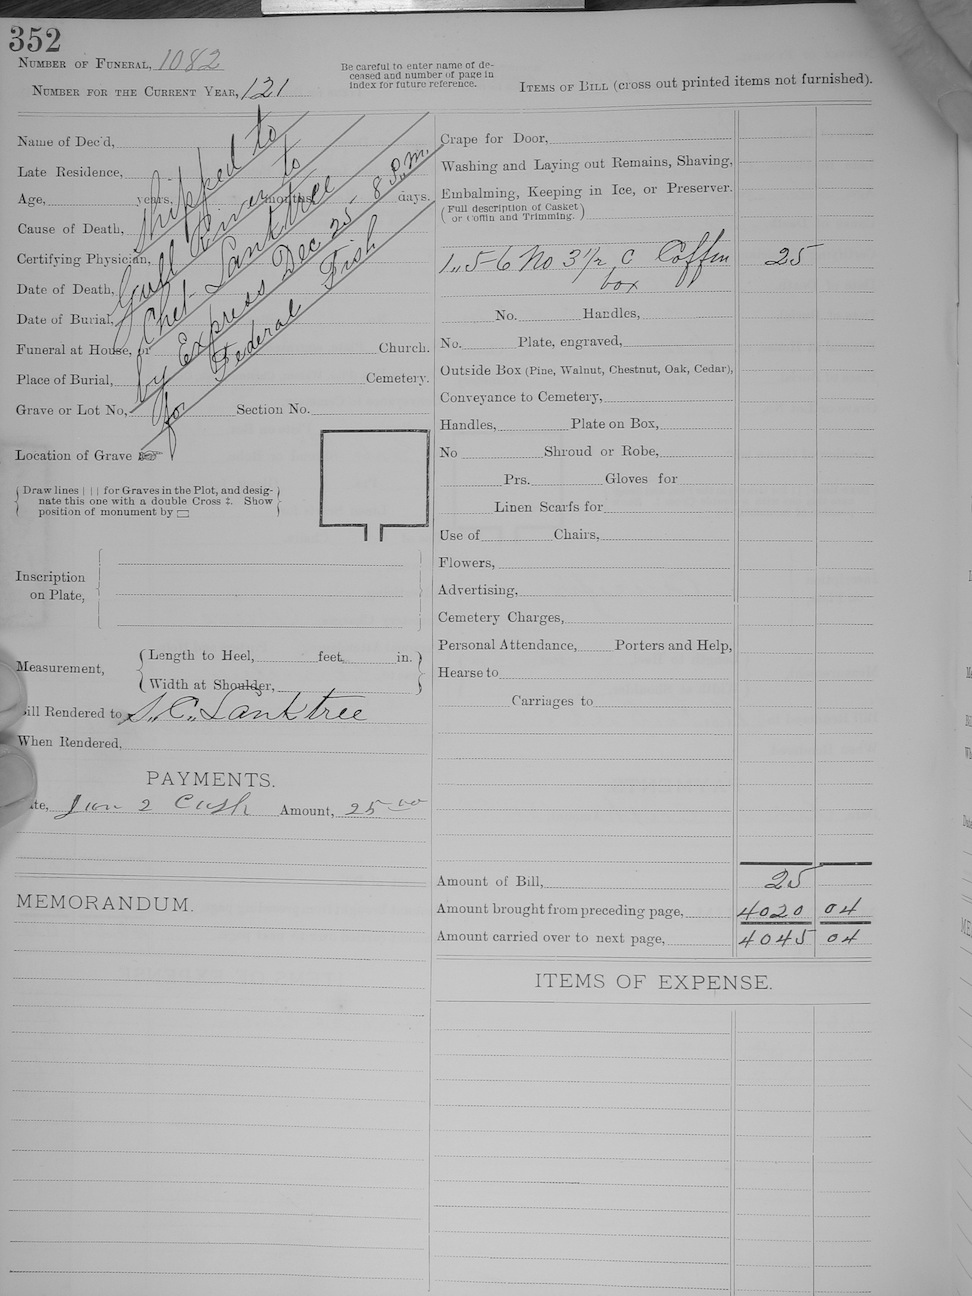 352
NUMBER OF FUNERAL, 1082
NUMBER FOR THE CURRENT YEAR, 121
Be careful to enter name of de-
ceased and number of page in
index for future reference.
ITEMS OF BILL (cross out printed items not furnished).
Name of Dec'd,
Late Residence,
Age, years, months, days.
Cause of Death,
Certifying Physician,
Date of Death,
Date of Burial,
Funeral at House, or Church.
Place of Burial, Cemetery.
Grave or Lot No, Section No.
shipped to
Gull River to
Chet Lanktree
by Express Dec 25 - 8 P.M.
for Federal Fish
Location of Grave ☞
Draw lines | | | for Graves in the Plot, and desig-
nate this one with a double Cross ‡. Show
position of monument by ▭
Inscription
on Plate,
Measurement,
Length to Heel, feet, in.
Width at Shoulder,
Bill Rendered to S. C. Lanktree
When Rendered,
PAYMENTS.
Date, Jan 2 Cash Amount, 25 00
MEMORANDUM.
Crape for Door,
Washing and Laying out Remains, Shaving,
Embalming, Keeping in Ice, or Preserver.
(Full description of Casket
or Coffin and Trimming.)
1 „ 5-6 No 3 1/2 C Coffin 25
box
No. Handles,
No. Plate, engraved,
Outside Box (Pine, Walnut, Chestnut, Oak, Cedar),
Conveyance to Cemetery,
Handles, Plate on Box,
No Shroud or Robe,
Prs. Gloves for
Linen Scarfs for
Use of Chairs,
Flowers,
Advertising,
Cemetery Charges,
Personal Attendance, Porters and Help,
Hearse to
Carriages to
Amount of Bill, 25
Amount brought from preceding page, 4020 04
Amount carried over to next page, 4045 04
ITEMS OF EXPENSE.